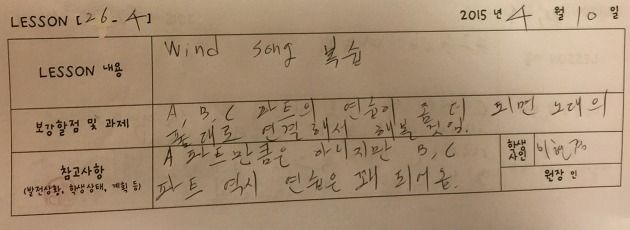 LESSON [26-4] 2015년 4월 10일
LESSON 내용
Wind Song 복습
보강할점 및 과제
A, B, C 파트의 연습이 좀 더 되면 노래의
폼대로 연결해서 해볼 것임.
참고사항
(발전상황, 학생상태, 계획 등)
A 파트만큼은 아니지만 B, C
파트 역시 연습은 꽤 되어옴.
학생
사인
원장 인